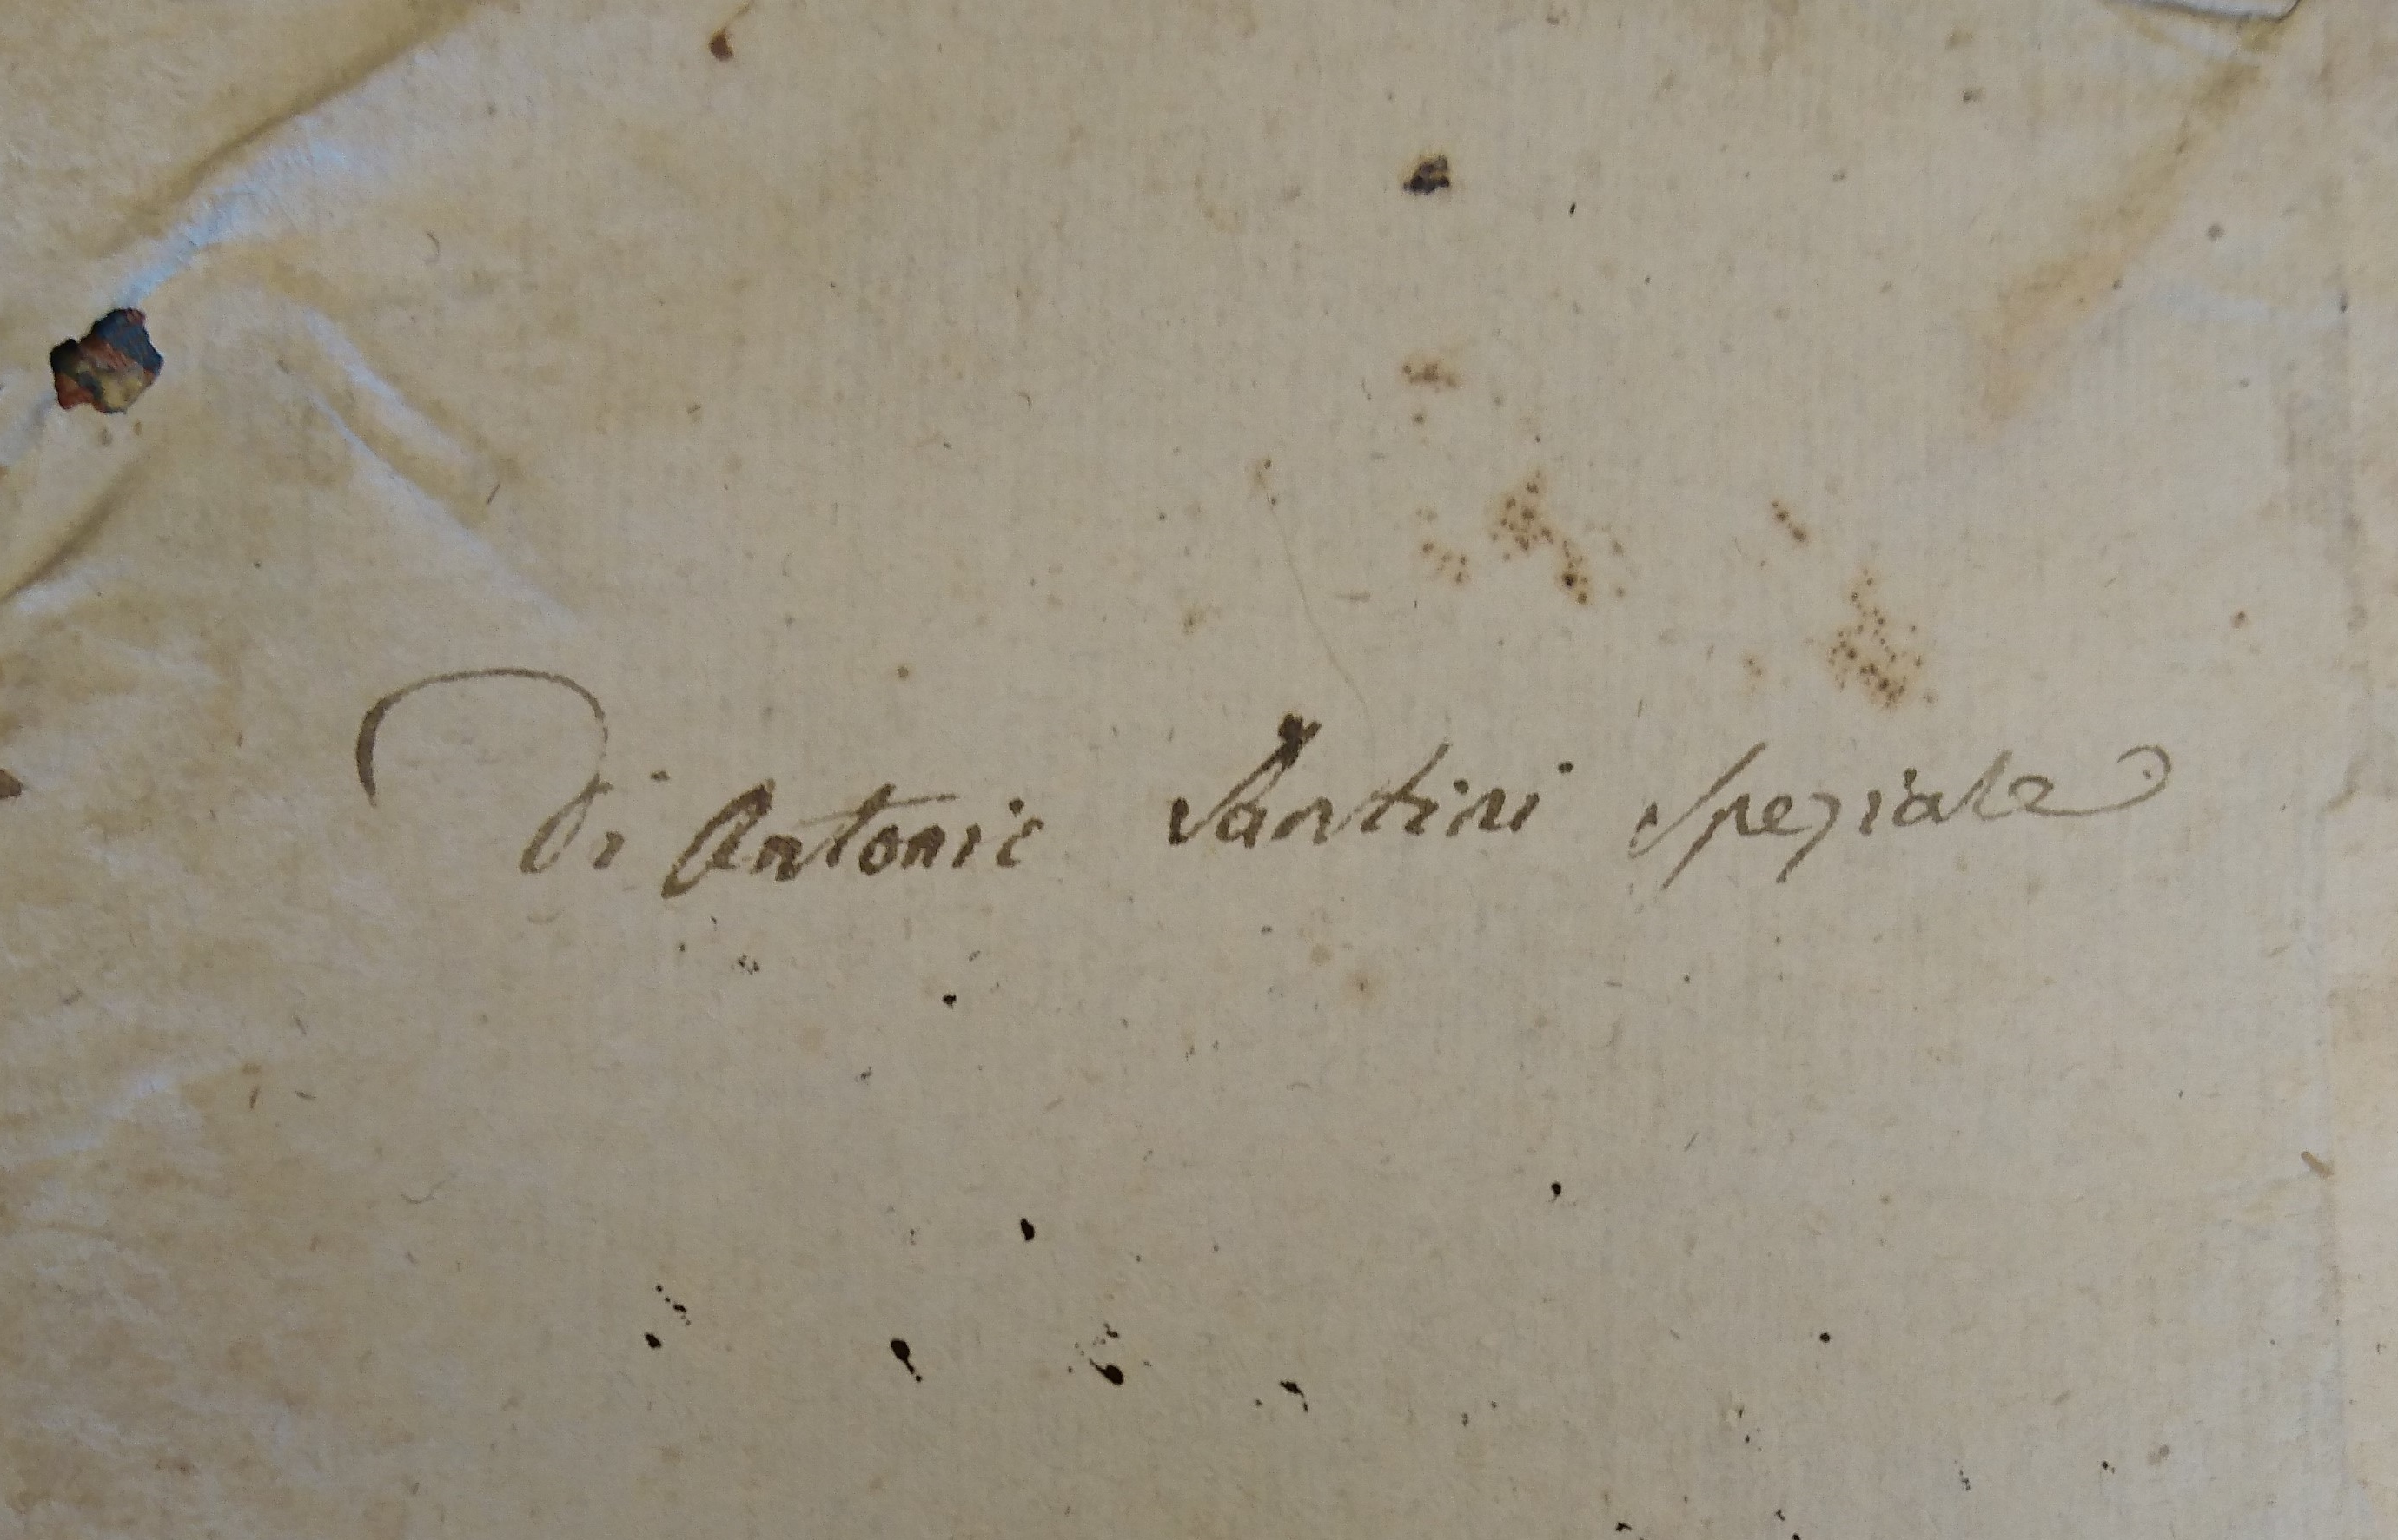 Di Antonio Santini Speziale